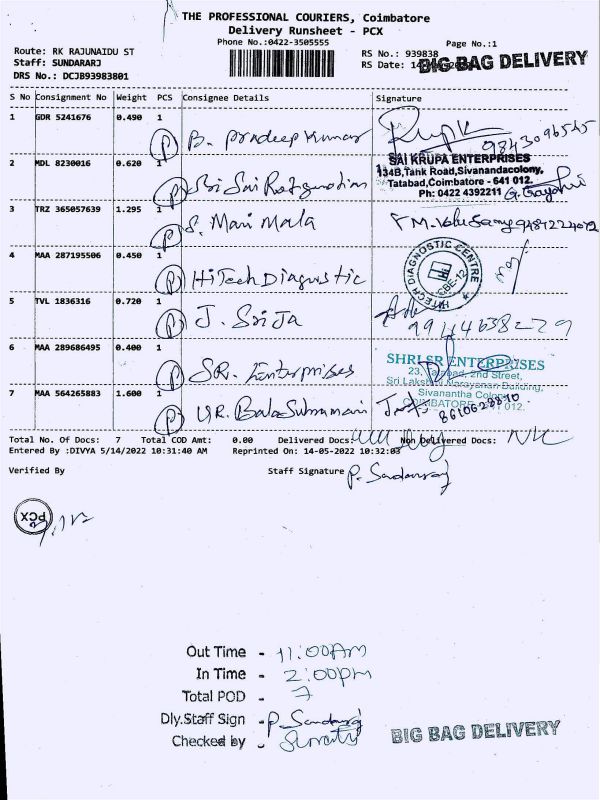 THE PROFESSIONAL COURIERS, Coimbatore
Delivery Runsheet - PCX
Phone No.:0422-3505555
Page No.:1
Route: RK RAJUNAIDU ST
Staff: SUNDARARJ
DRS No.: DCJB93983801
RS No.: 939838
RS Date: 14
BIG BAG DELIVERY
S No Consignment No Weight PCS Consignee Details Signature
1 GDR 5241676 0.490 1 P B. Pradeep Kumar 9843096545
2 MDL 8230016 0.620 1 P Sri Sai
SAI KRUPA ENTERPRISES
134B,Tank Road,Sivanandacolony,
Tatabad,Coimbatore - 641 012.
Ph: 0422 4392211 G. Gayathri
3 TRZ 365057639 1.295 1 P S. Mani Mala
4 MAA 287195506 0.450 1 P HiTech Diagnostic
HITECH DIAGNOSTIC CENTRE CBE-12
5 TVL 1836316 0.720 1 P J. SriJa
9944638229
6 MAA 289686495 0.400 1 P SR. Enterprises
SHRI SR ENTERPRISES
23, Tatabad, 2nd Street,
Sri Lakshmi Narayanan Building,
Sivanantha Colony
COIMBATORE 012.
7 MAA 564265883 1.600 1 P R. BalaSubramani 8610628810
Total No. Of Docs: 7 Total COD Amt: 0.00 Delivered Docs: Non Delivered Docs: NIL
Entered By :DIVYA 5/14/2022 10:31:40 AM Reprinted On: 14-05-2022 10:32:03
Verified By Staff Signature P. Sundararaj
PCX
Out Time - 11:00AM
In Time - 2:00pm
Total POD - 7
Dly.Staff Sign - P. Sundararaj
Checked by -
BIG BAG DELIVERY